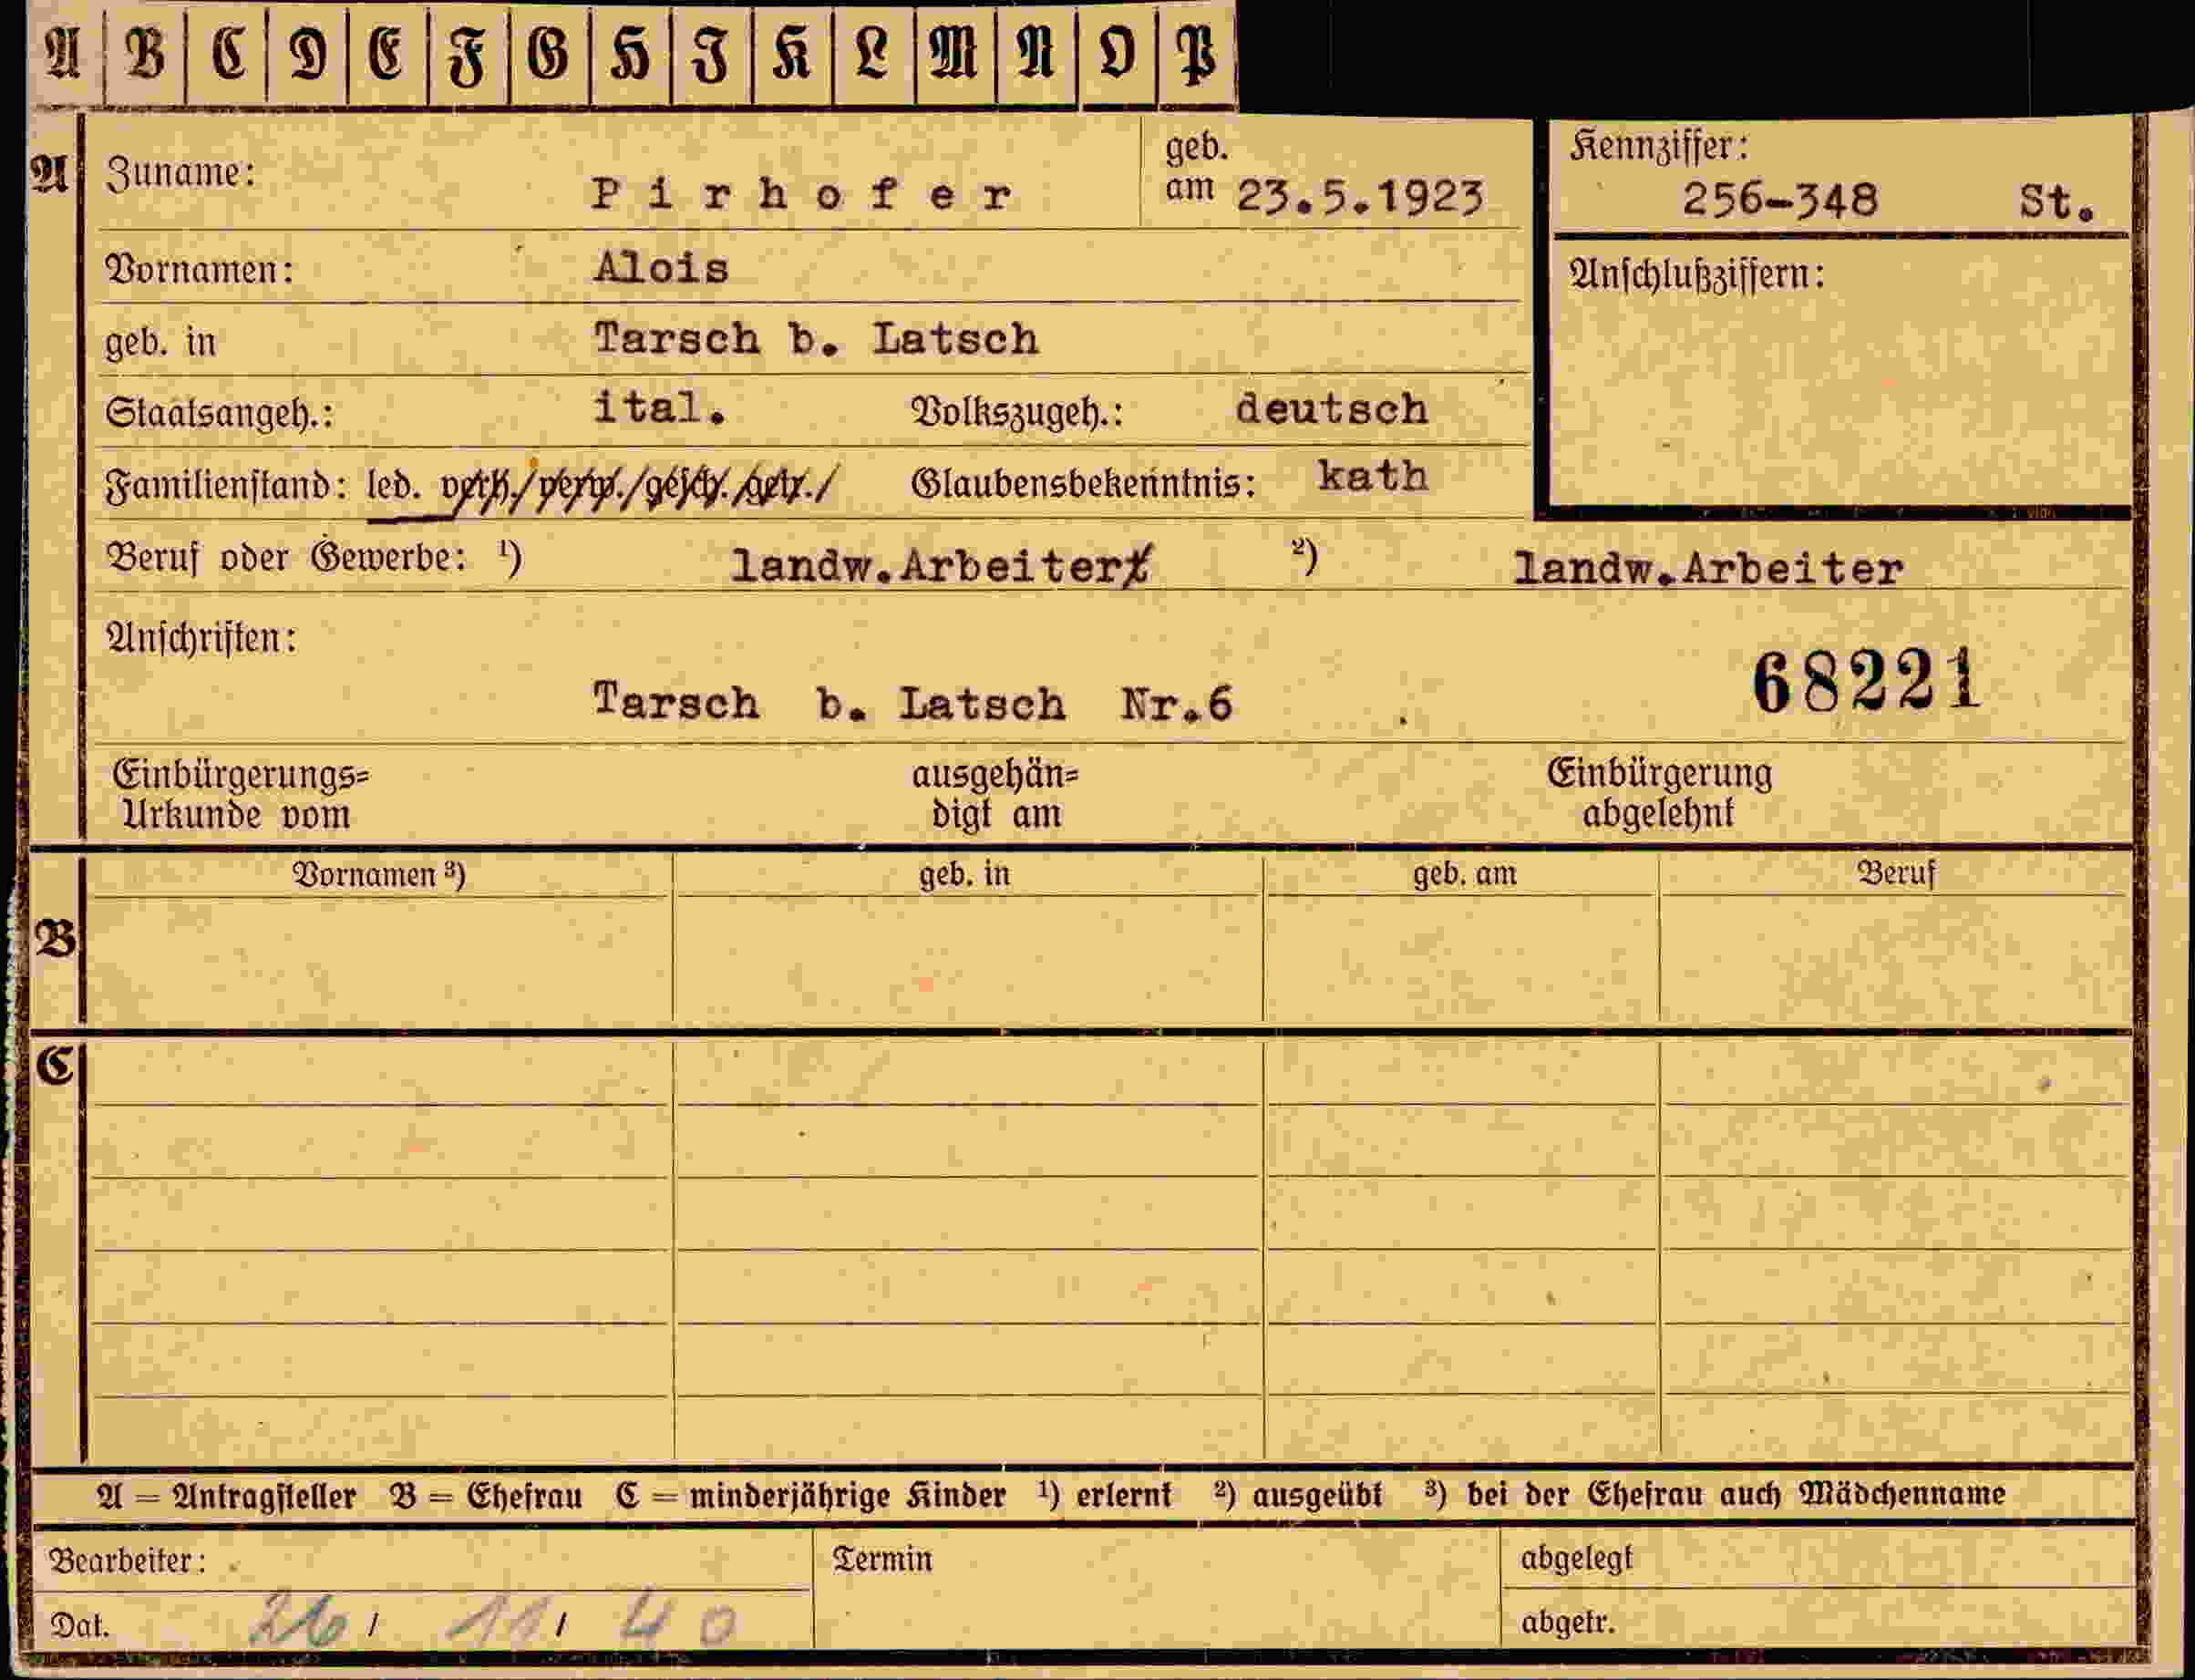 A B C D E F G H I K L M N O P
A Zuname: Pirhofer geb. am 23.5.1923 Kennziffer: 256-348 St.
Vornamen: Alois Anschlußziffern:
geb. in Tarsch b. Latsch
Staatsangeh.: ital. Volkszugeh.: deutsch
Familienstand: led. verh./verw./gesch./getr./ Glaubensbekenntnis: kath
Beruf oder Gewerbe: ¹) landw.Arbeiter ²) landw.Arbeiter
Anschriften: 68221
Tarsch b. Latsch Nr.6
Einbürgerungs= ausgehän= Einbürgerung
Urkunde vom digt am abgelehnt
Vornamen ³) geb. in geb. am Beruf
B
C
A = Antragsteller B = Ehefrau C = minderjährige Kinder ¹) erlernt ²) ausgeübt ³) bei der Ehefrau auch Mädchenname
Bearbeiter: Termin abgelegt
Dat. 26/ 11/ 40 abgetr.